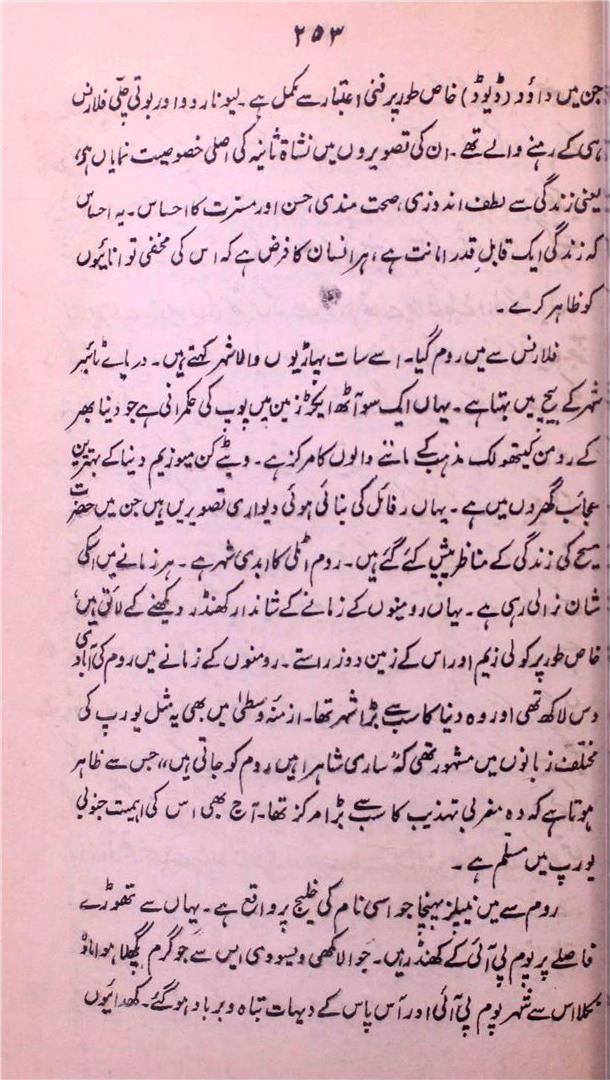 ۲۵۳
جن میں داؤد (ڈیوڈ) خاص طور پر فنی اعتبار سے مکمل ہے۔ لیونارڈو اور بوتی چلّی فلارنس
ہی کے رہنے والے تھے۔ ان کی تصویروں میں نشاۃ ثانیہ کی اصلی خصوصیت نمایاں ہی،
یعنی زندگی سے لطف اندوزی، صحت مندی، حسن اور مسرت کا احساس۔ یہ احساس
کہ زندگی ایک قابلِ قدر امانت ہے، ہر انسان کا فرض ہے کہ اس کی مخفی توانائیوں
کو ظاہر کرے۔
فلارنس سے میں روم گیا۔ اسے سات پہاڑیوں والا شہر کہتے ہیں۔ دریائے ٹائبر
شہر کے بیچ میں بہتا ہے۔ یہاں ایک سو آٹھ ایکڑ زمین میں پوپ کی حکمرانی ہے جو دنیا بھر
کے رومن کیتھولک مذہب کے ماننے والوں کا مرکز ہے۔ ویٹے کن میوزیم دنیا کے بہترین
عجائب گھروں میں ہے۔ یہاں رفائل کی بنائی ہوئی دیواری تصویریں ہیں جن میں حضرت
مسیح کی زندگی کے مناظر پیش کئے گئے ہیں۔ روم اٹلی کا ابدی شہر ہے۔ ہر زمانے میں اسکی
شان نرالی رہی ہے۔ یہاں رومینوں کے زمانے کے شاندار کھنڈر دیکھنے کے لائق ہیں،
خاص طور پر کولی زیم اور اس کے زمین دوز راستے۔ رومنوں کے زمانے میں روم کی آبادی
دس لاکھ تھی اور وہ دنیا کا سب سے بڑا شہر تھا۔ ازمنۂ وسطیٰ میں بھی یہ مثل یورپ کی
مختلف زبانوں میں مشہور تھی کہ "ساری شاہراہیں روم کو جاتی ہیں"، جس سے ظاہر
ہوتا ہے کہ وہ مغربی تہذیب کا سب سے بڑا مرکز تھا۔ آج بھی اس کی اہمیت جنوبی
یورپ میں مسلّم ہے۔
روم سے میں نیپلز پہنچا جو اسی نام کی خلیج پر واقع ہے۔ یہاں سے تھوڑے
فاصلے پر پوم پی آئی کے کھنڈر ہیں۔ جوالا مکھی ویسووی ایس سے جو گرم پگھلا ہوا مادّہ
نکلا اس سے شہر پوم پی آئی اور آس پاس کے دیہات تباہ و برباد ہو گئے۔ کھدائیوں